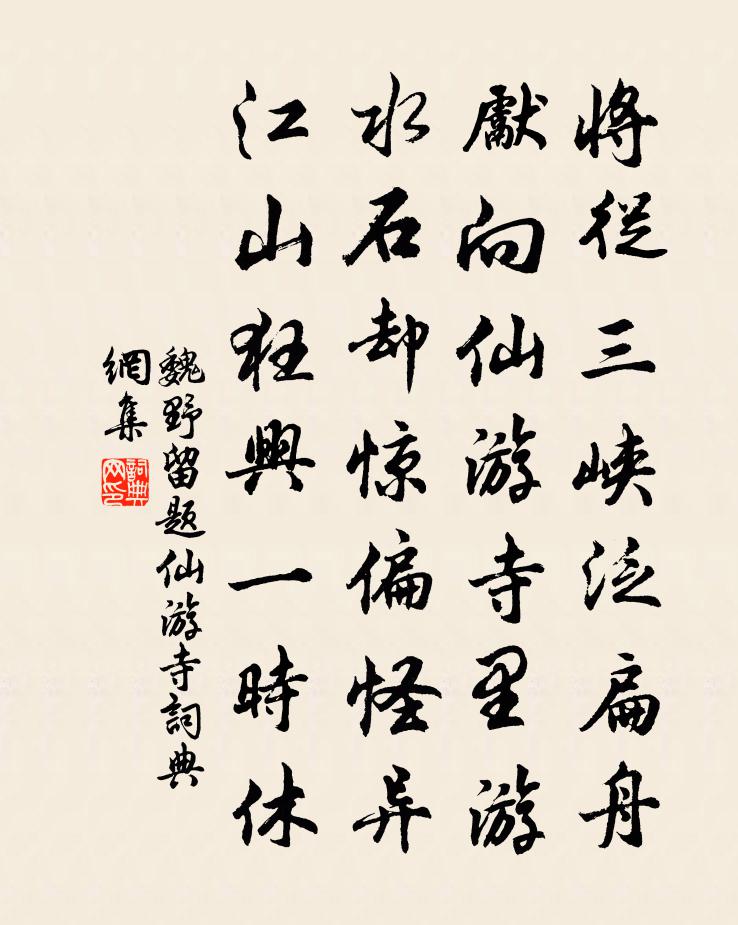 將從三峽泛扁舟
獻向仙游寺里游
水石却惊偏怪异
江山狂興一時休
魏野留题仙游寺詞典
網集
詞典網印